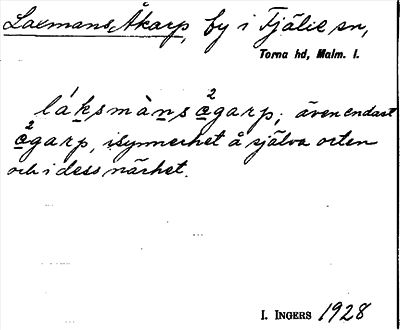 Laxmans Åkarp, by i Fjälie sn,
Torna hd, Malm. l.
láksmàns ²ågarp; även endast
²ågarp, i synnerhet å själva orten
och i dess närhet.
I. INGERS 1928